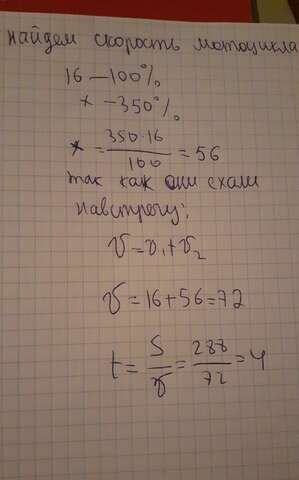 найдем скорость мотоцикла
16 – 100%
x – 350%
x = 350·16/100 = 56
так как они ехали
навстречу:
v = v₁ + v₂
v = 16 + 56 = 72
t = S/v = 288/72 = 4